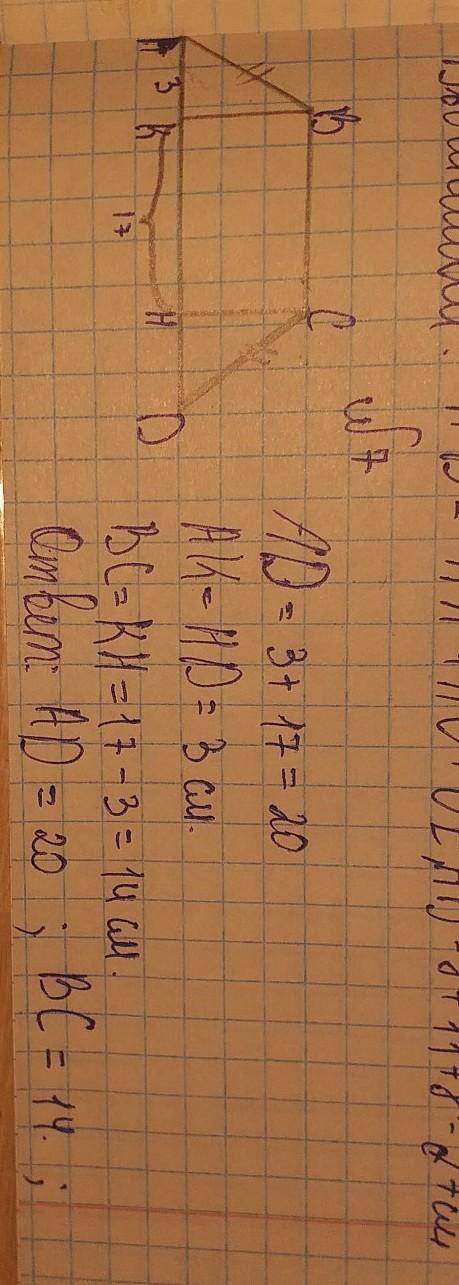 №7
B
C
A
3
K
H
D
17
AD = 3 + 17 = 20
AK = HD = 3 см.
BC = KH = 17 - 3 = 14 см.
Ответ: AD = 20 ; BC = 14. ;